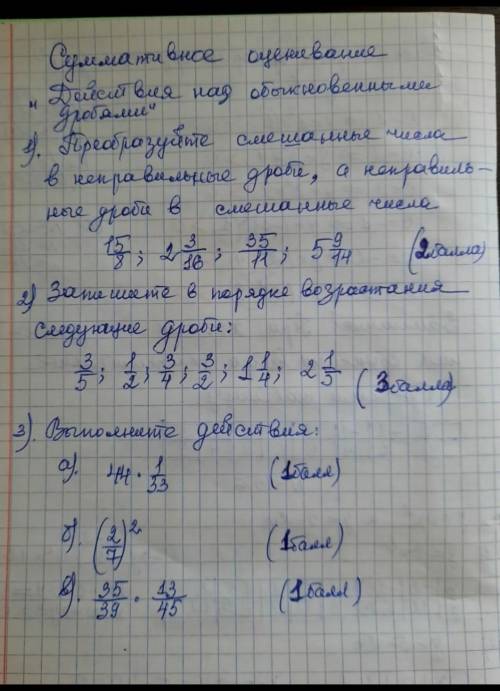 Суммативное оценивание
„Действия над обыкновенными
дробями“
1). Преобразуйте смешанные числа
в неправильные дроби, а неправиль-
ные дроби в смешанные числа
15/8; 2 3/16; 35/11; 5 9/14 (2балла)
2) Запишите в порядке возрастания
следующие дроби:
3/5; 1/2; 3/4; 3/2; 1 1/4; 2 1/5 (3балла)
3). Выполните действия:
а). 44 · 1/33 (1балл)
б). (2/7)² (1балл)
в). 35/39 · 13/45 (1балл)